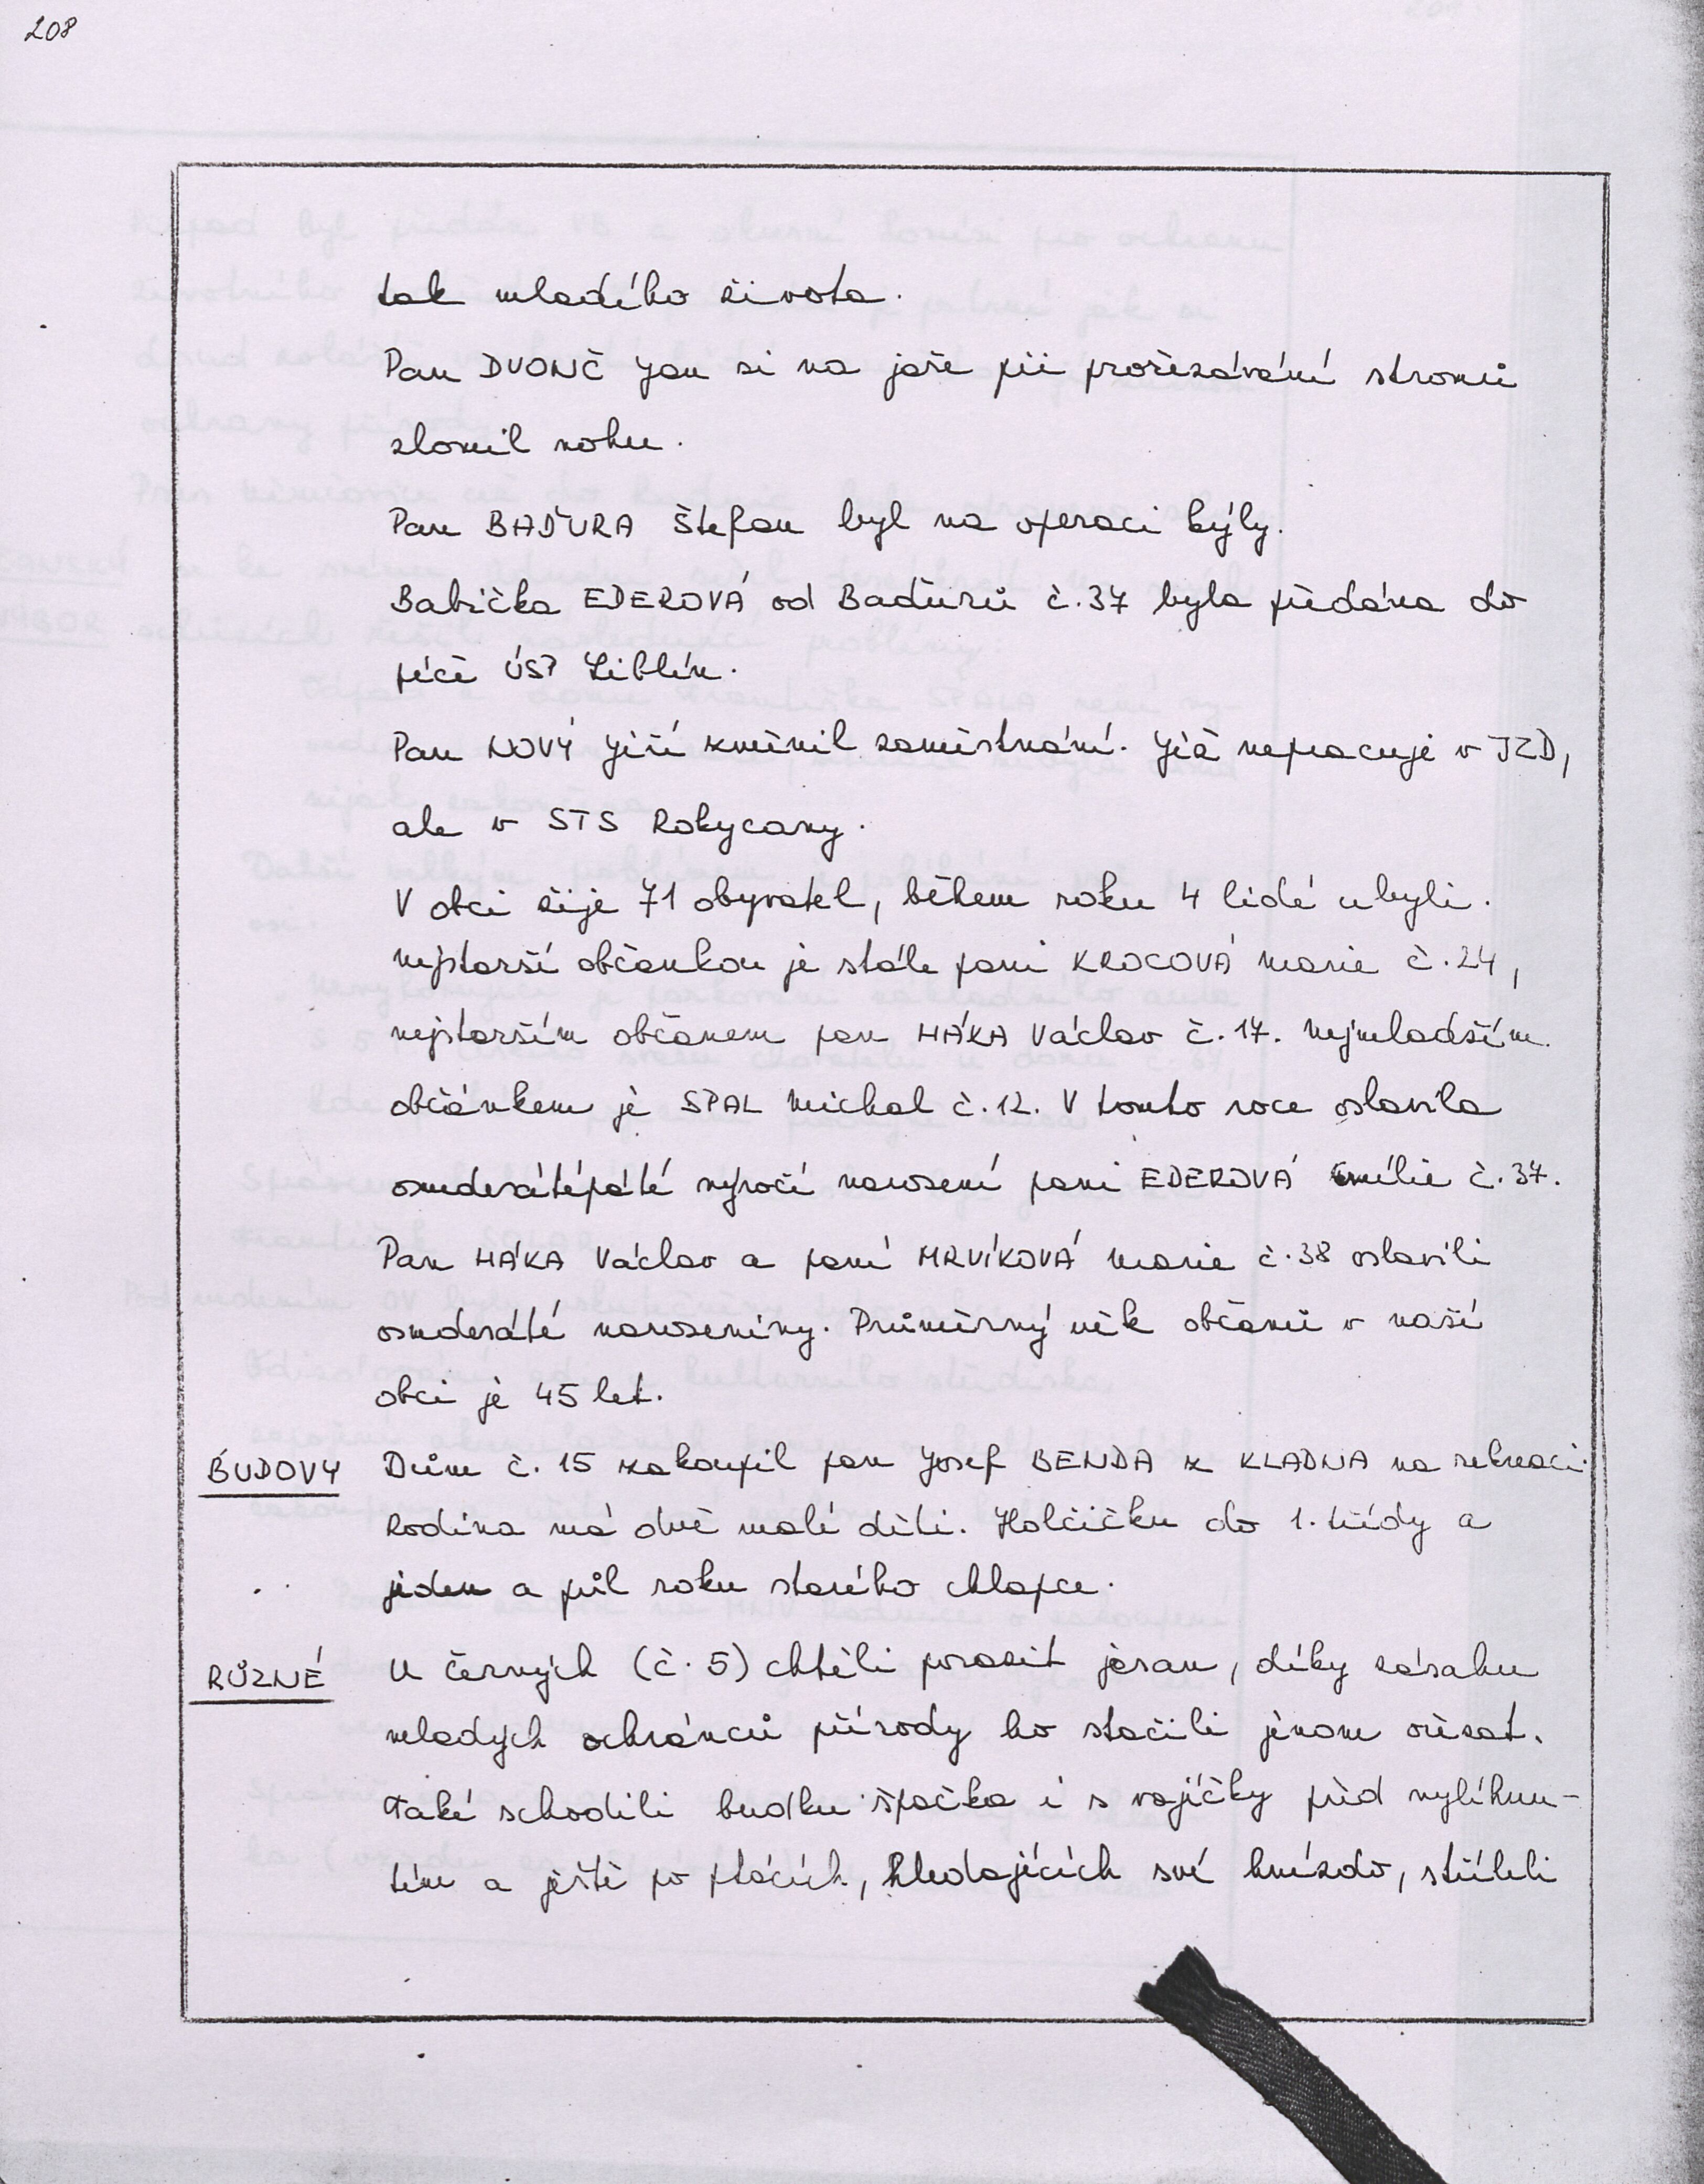 208
tak mladého života.
Pan DVONČ Jan si na jaře při prořezávání stromů
zlomil nohu.
Pan BAĎURA Štefan byl na operaci kýly.
Babička EDEROVÁ od Baďurů č. 37 byla předána do
péče ÚSP Liblín.
Pan NOVÝ Jiří změnil zaměstnání. Již nepracuje v JZD,
ale v STS Rokycany.
V obci žije 71 obyvatel, během roku 4 lidé ubyli.
Nejstarší občankou je stále paní KROCOVÁ Marie č. 24,
nejstarším občanem pan HÁKA Václav č. 17. Nejmladším
občánkem je SPAL Michal č. 12. V tomto roce oslavila
osmdesátépáté výročí narození paní EDEROVÁ Emílie č. 37.
Pan HÁKA Václav a paní MRVÍKOVÁ Marie č. 38 oslavili
osmdesáté narozeniny. Průměrný věk občanů v naší
obci je 45 let.
BUDOVY Dům č. 15 zakoupil pan Josef BENDA z KLADNA na rekreaci.
Rodina má dvě malé děti. Holčičku do 1. třídy a
jeden a půl roku starého chlapce.
RŮZNÉ U Černých (č. 5) chtěli porazit jasan, díky zásahu
mladých ochránců přírody ho stačili jenom ořezat.
Také schodili budku špačka i s vajíčky před vylíhnu-
tím a ještě po ptácích, hledajících své hnízdo, stříleli